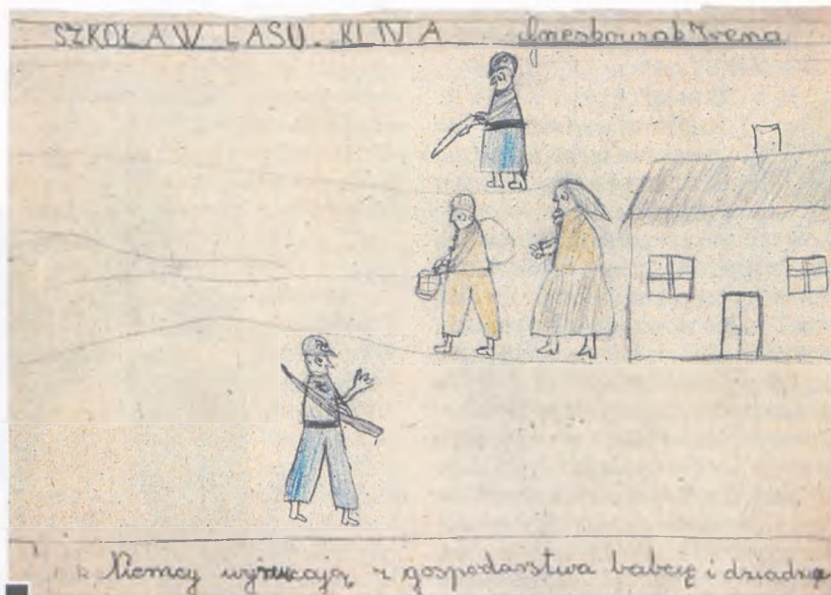 SZKOŁA W LASU. KL IV A Irena
Niemcy wyrzucają z gospodarstwa babcię i dziadzia